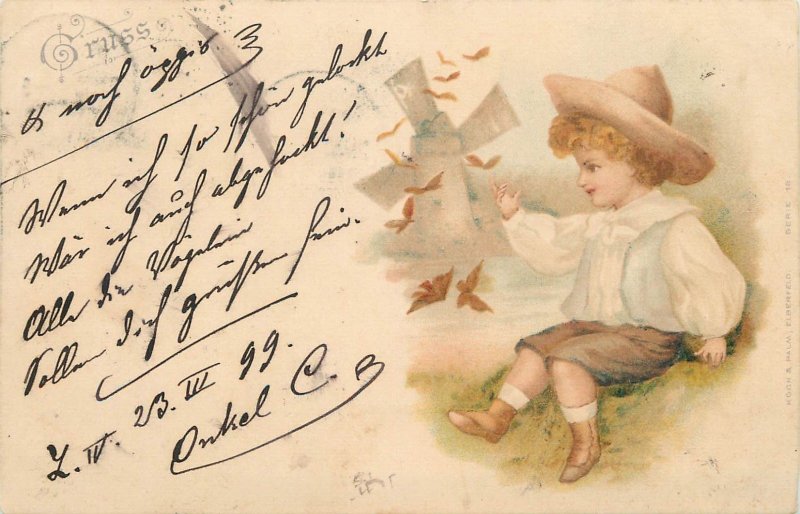 Gruss
& noch öppis.
Wenn ich so schön gelockt
Wär ich auch abgehockt!
Alle die Vögelein
Sollen dich grüßen fein.
Z. IV. 23. III 99.
Onkel C.
KOCH & PALM, ELBERFELD SERIE 16